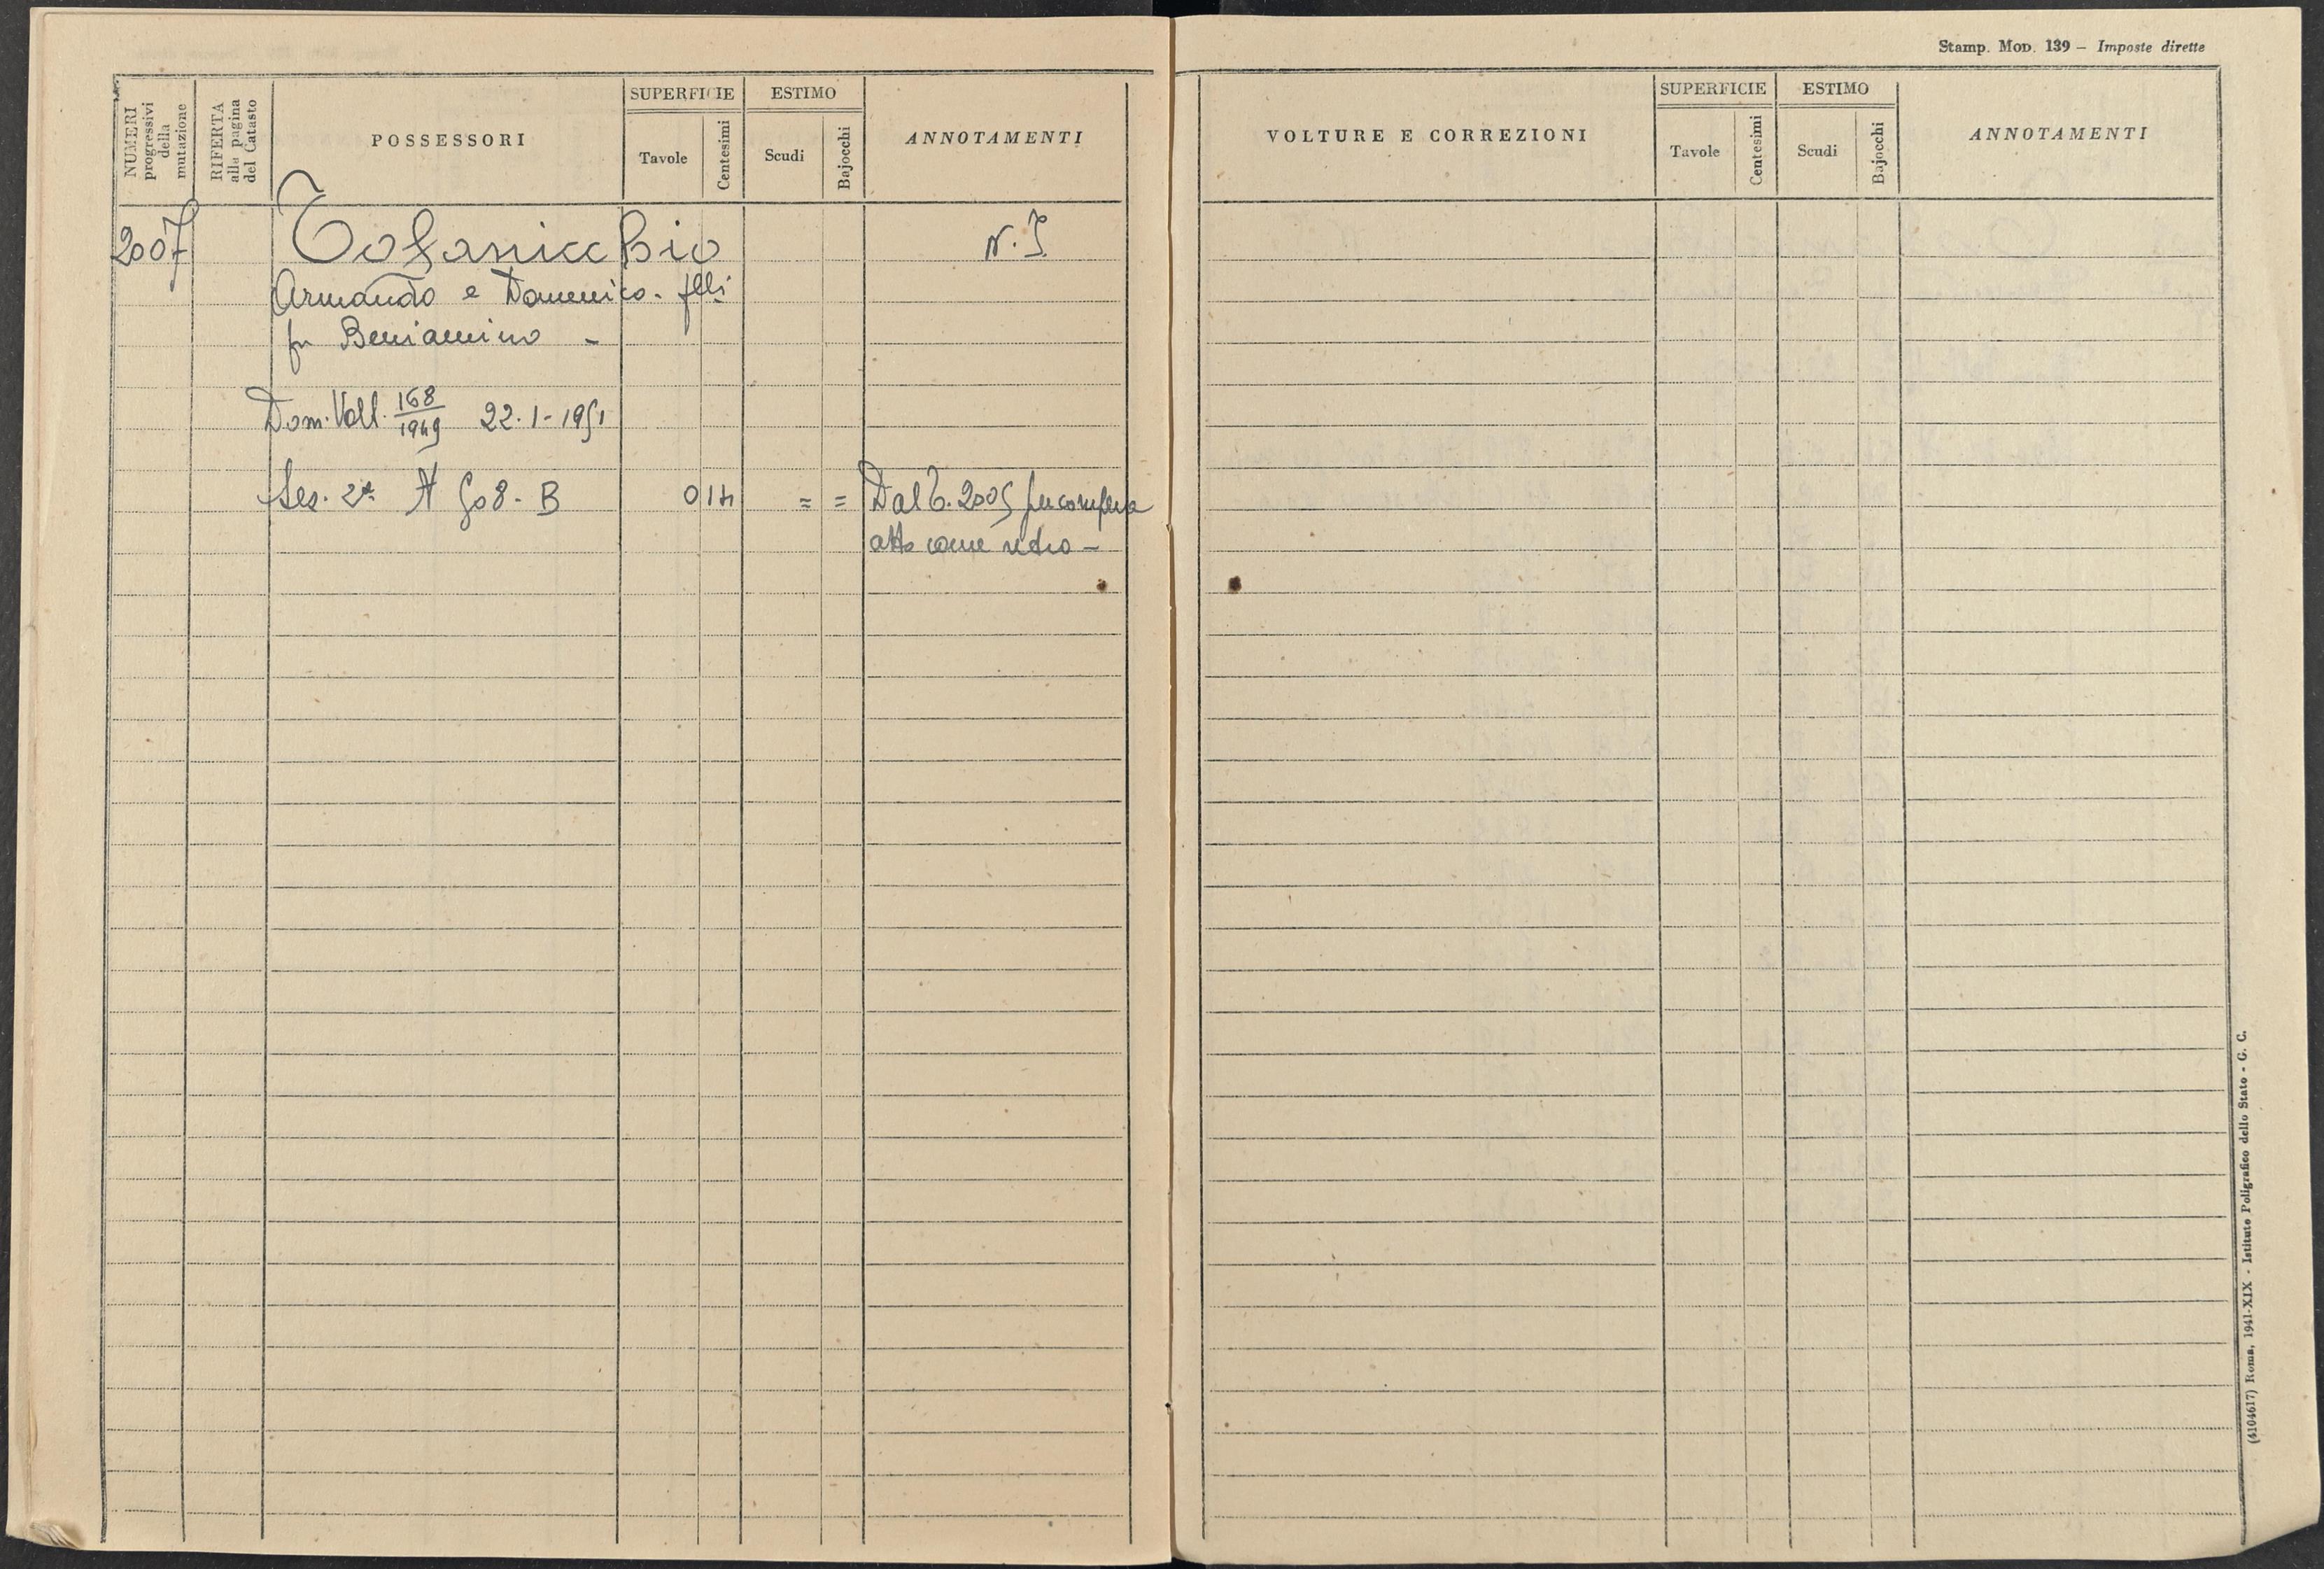 NUMERI progressivi della mutazione
RIFERTA alla pagina del Catasto
POSSESSORI
SUPERFICIE
Tavole
Centesimi
ESTIMO
Scudi
Bajocchi
ANNOTAMENTI
2007
Tofanicchio
N. 5
Armando e Domenico. flli
fu Beniamino -
Dom. Volt. 168/1949 22-1-1951
Sez. 2ª A 508- B
0 14 = =
Dal C. 2005 per compera
atto come retro -
Stamp. Mod. 139 - Imposte dirette
VOLTURE E CORREZIONI
SUPERFICIE
Tavole
Centesimi
ESTIMO
Scudi
Bajocchi
ANNOTAMENTI
(4104617) Roma, 1941-XIX - Istituto Poligrafico dello Stato - G. C.